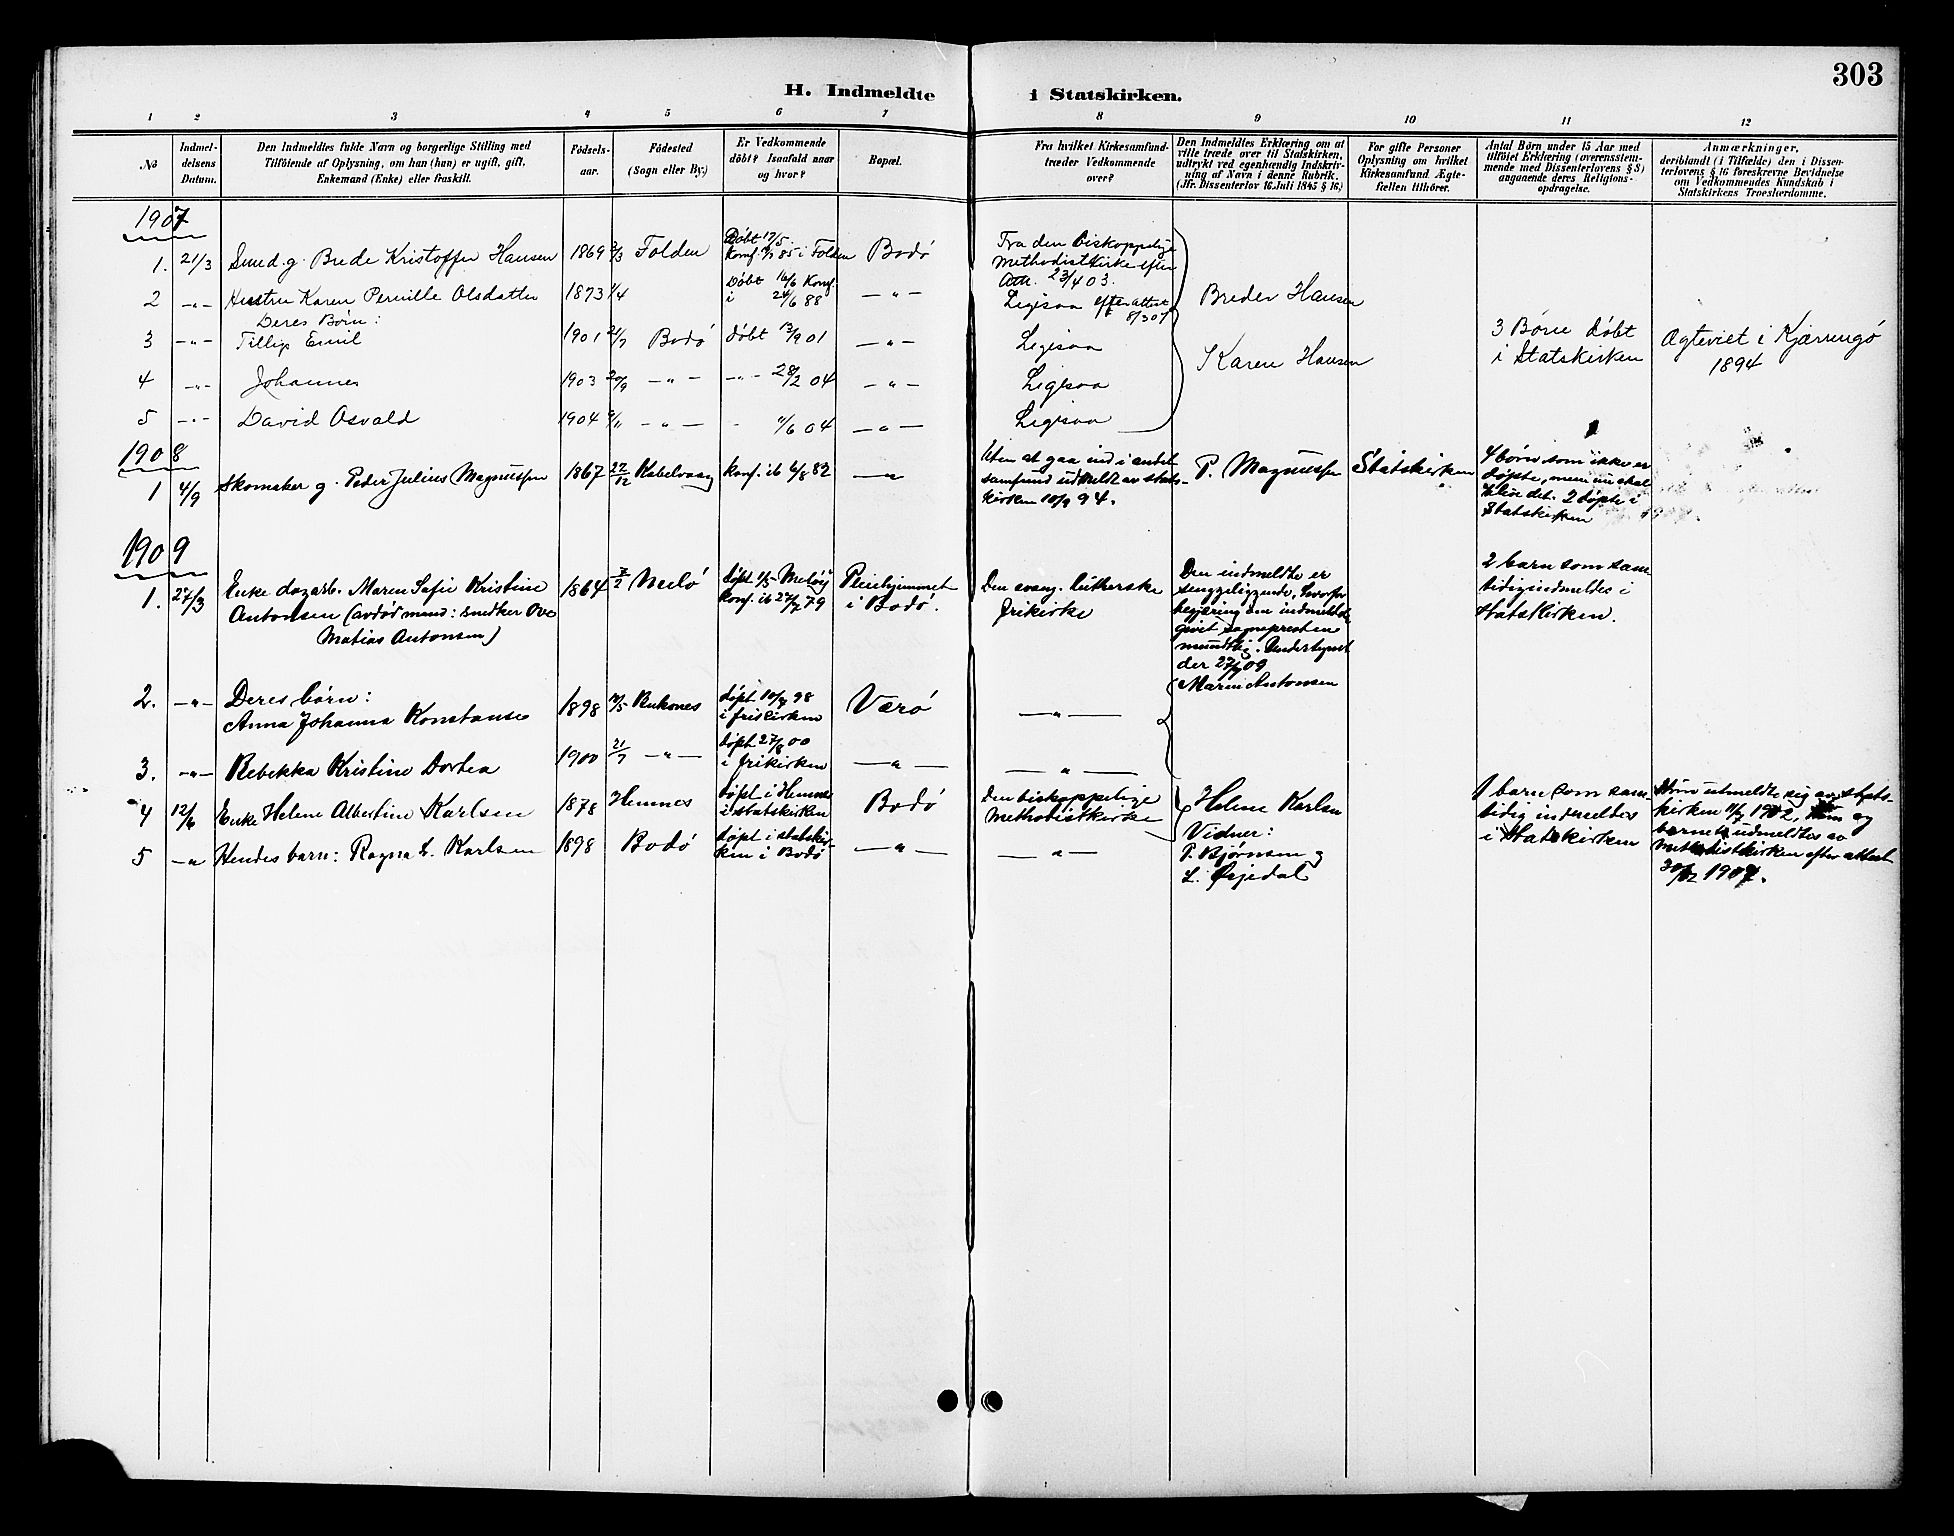 303
H. Indmeldte i Statskirken.
1 2 3 4 5 6 7 8 9 10 11 12
No
Indmel-
delsens
Datum.
Den Indmeldtes fulde Navn og borgerlige Stilling med
Tilföiende af Oplysning, om han (hun) er ugift, gift,
Enkemand (Enke) eller fraskilt.
Födsels-
aar.
Födested
(Sogn eller By.)
Er Vedkommende
döbt? Isaafald naar
og hvor?
Bopæl.
Fra hvilket Kirkesamfund-
træder Vedkommende
over?
Den Indmeldtes Erklæring om at
ville træde over til Statskirken,
udtrykt ved egenhændig Indskriv-
ning af Navn i denne Rubrik.
(Jfr. Dissenterlov 16. Juli 1845 § 16.)
For gifte Personer
Oplysning om hvilket
Kirkesamfund Ægte-
fællen tilhörer.
Antal Börn under 15 Aar med
tilföiet Erklæring (overensstem-
mende med Dissenterlovens § 8)
angaaende deres Religions-
opdragelse.
Anmærkninger,
deriblandt (i Tilfælde) den i Dissen-
terlovens § 16 foreskrevne Bevidnelse
om Vedkommendes Kundskab i
Statskirkens Troeslærdomme.
1907
1. 21/3 Smed. g. Brede Kristoffer Hansen 1869 Folden
Döbt 17/5
Konf. 85 i Folden
Bodö
Fra den biskoppelige
Methodistkirke efter
Att. 23/4 03.
2 -"- Hustru Karen Pernille Olsdatter 1873 1/4
Döbt 16/6 Konf.
i 24/6 88
-"-
Ligesaa efter attest
8/3 07
Breder Hansen
Deres Börn:
3 -"- Fillip Emil 1901 21/7 Bodö döbt 13/9 01 -"- Ligesaa
Karen Hansen
3 Börn döbt
i Statskirken
Ægteviet i Kjærringö
1894
4 -"- Johannes 1903 20/9 -"- -"- 28/2 04 -"- Ligesaa
5 -"- David Osvald 1904 -"- 11/6 04 -"- Ligesaa
1908
1 4/9 Skomaker g. Peder Julius Magnussen 1867 22/12 Kabelvaag konf. ib 6/8 82 -"-
Uten at gaa ind i andet
samfund udmeldt av stats-
kirken 10/9 94.
P. Magnussen
Statskirken
4 børn som ikke er
døpte, men nu skal
blive det. 2 døpte i
Statskirken
1909
1. 27/3 Enke dagarb. Maren Sofie Kristine
Antonsen (avdød mand: snedker Ove
Matias Antonsen)
1864 7/2 Melö
døpt 1/5 Meløy
konf. ib 27/7 79
Pleiehjemmet
i Bodö.
Den evang. lutherske
frikirke
Den indmeldte er
sengeliggende, hvorfor
begjæring om indmeldelse
givet sogneprestene
mundtlig. Understegnet
der 27/3 09
Maren Antonsen
2 barn som sam-
tidig indmeldes i
statskirken.
2. -"- Deres børn:
Anna Johanna Konstanse 1898 Buksnes
døpt 10/7 98
i frikirken
Værö
-"-
3. -"- Rebekka Kristine Dortea 1900 21/7 -"-
døpt 27/8 00
i frikirken
-"-
-"-
4 12/6 Enke Helene Albertine Karlsen 1878 Hemnes
døpt i Hemnes
i statskirken
Bodö
Den biskoppelige
Methodistkirke
Helene Karlsen
Vidner:
P. Bjørnsen og
1 barn som sam-
tidig indmeldes
i Statskirken
Hun utmeldte sig av stats-
kirken 11/7 1902, Hun og
barnet utmeldtes av
methodistkirken efter attest
30/12 1907.
5 -"- Hendes barn: Ragna L. Karlsen 1898 Bodö
døpt i statskir-
ken i Bodö
-"-
-"-